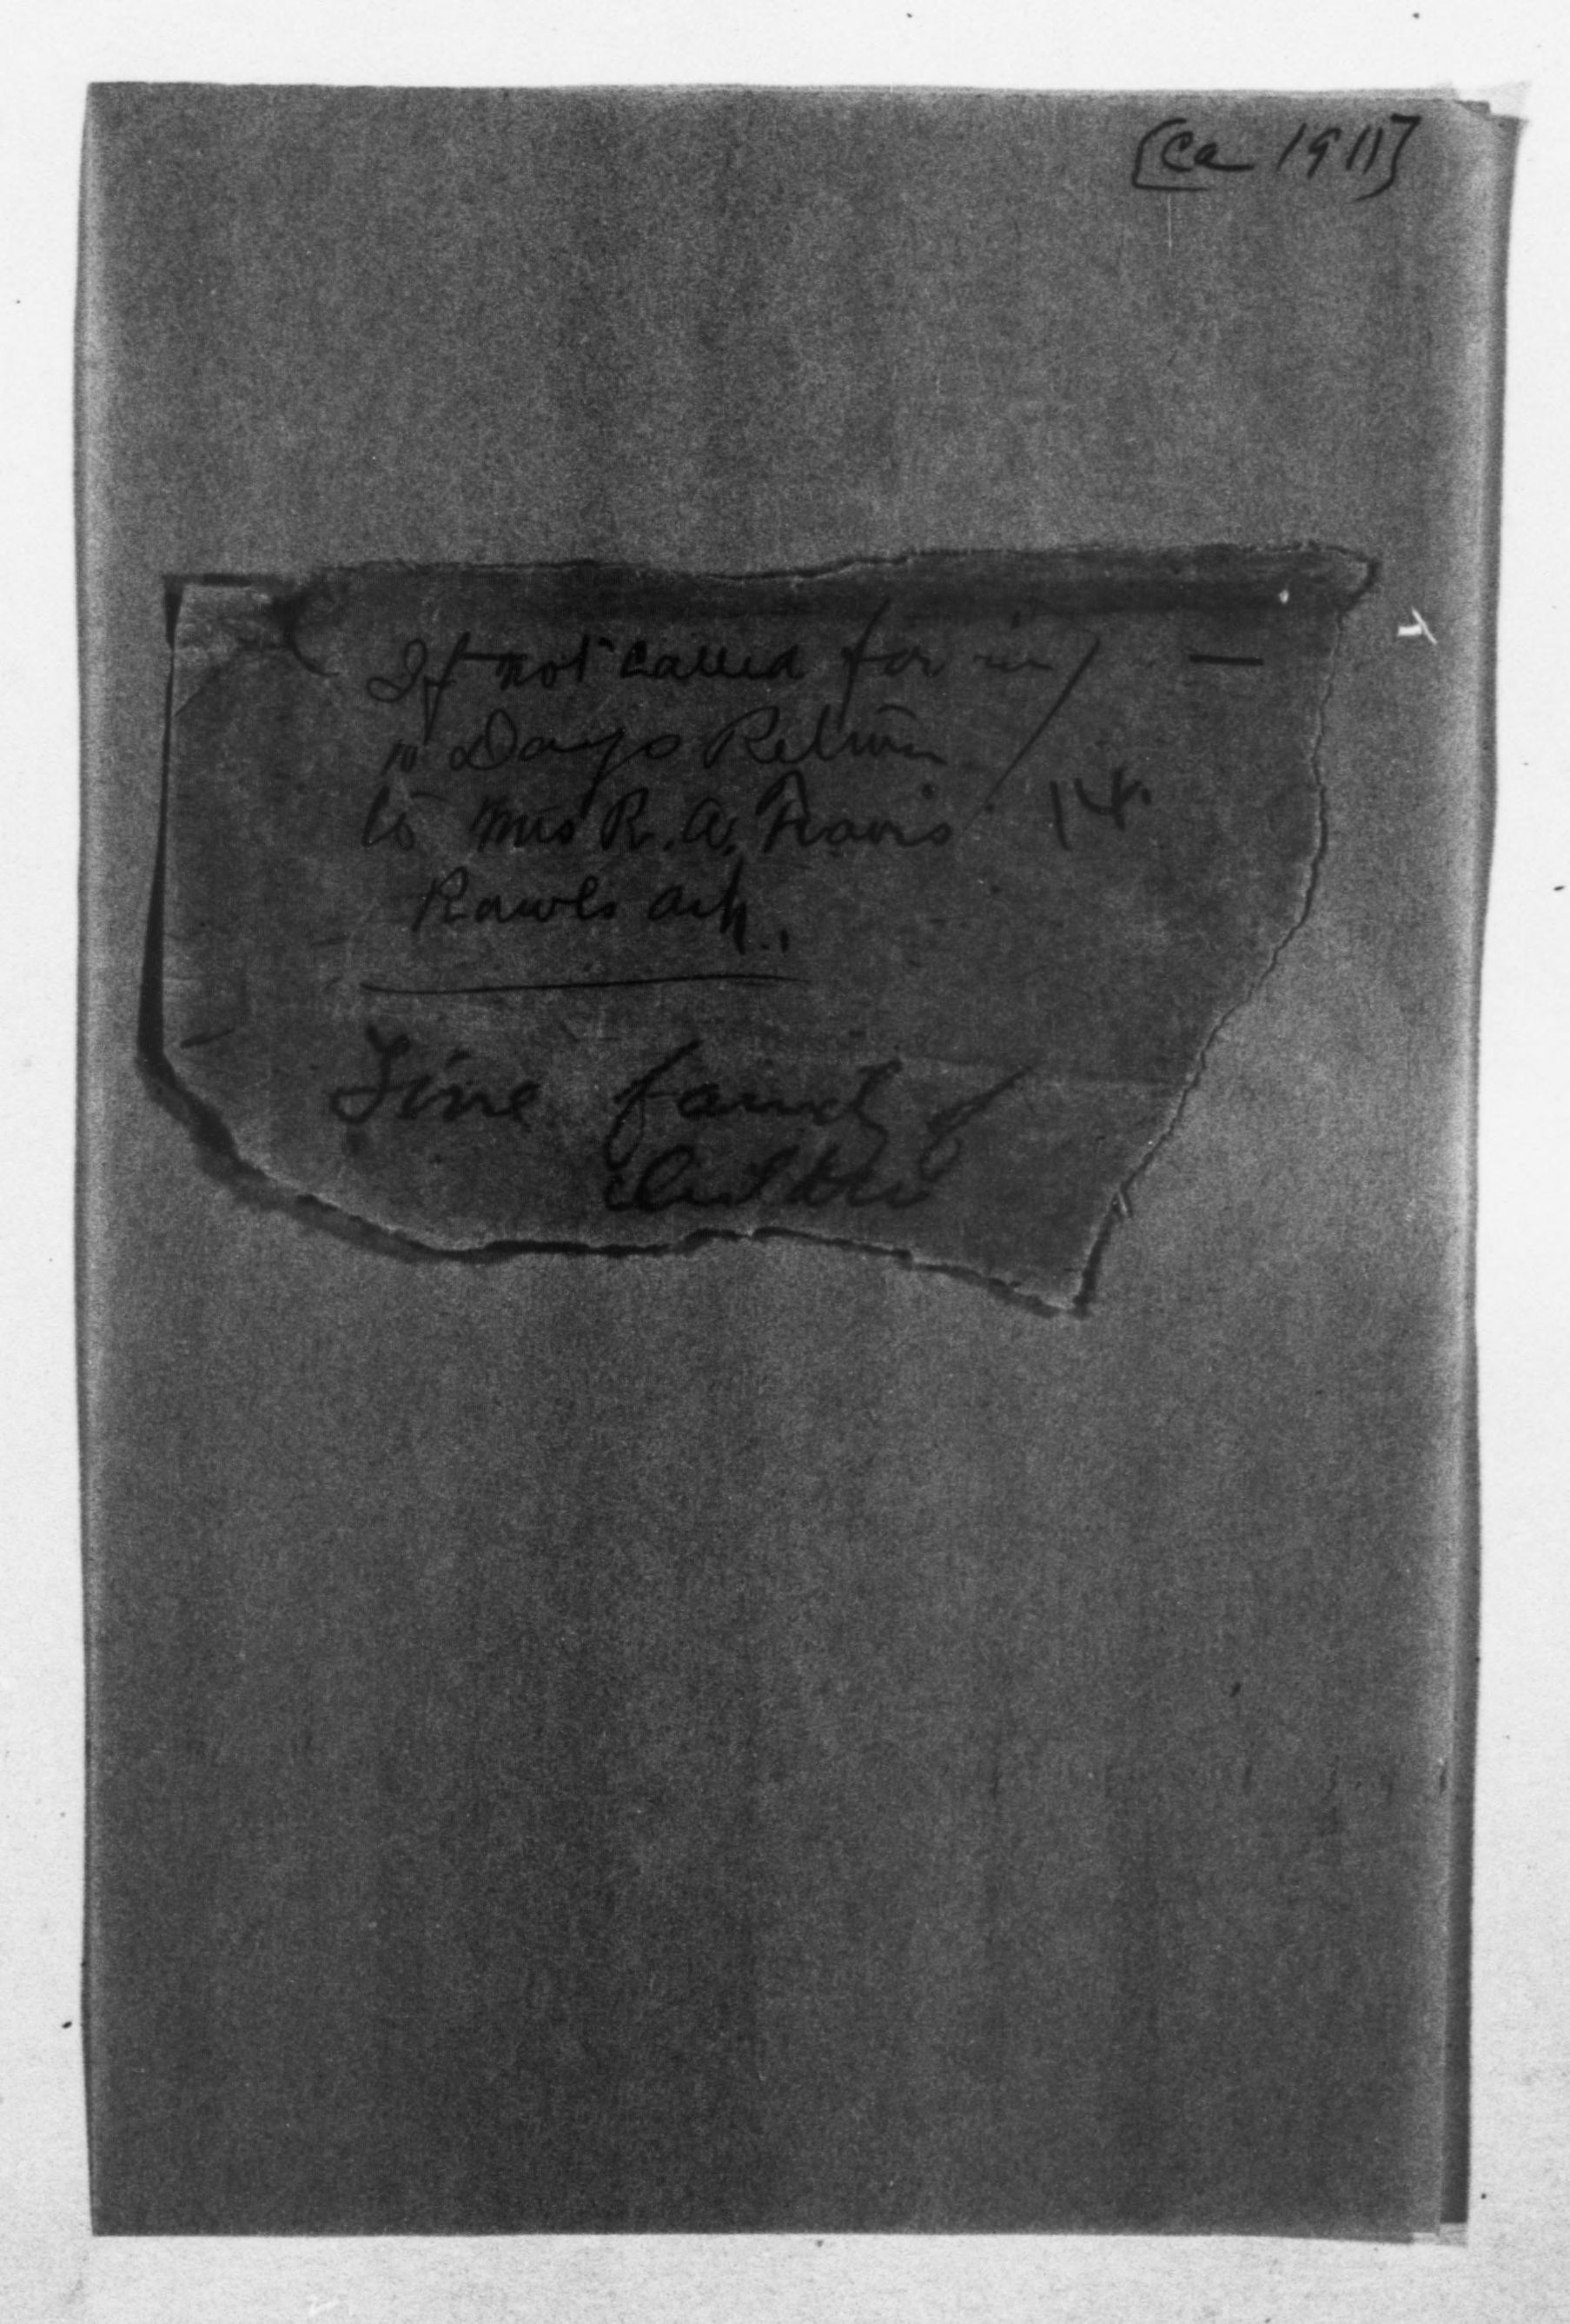 [ca 1911]
If not called for in
10 Days Return
to Mrs R. A. Travis 14
Rawls Ark.
Fine family